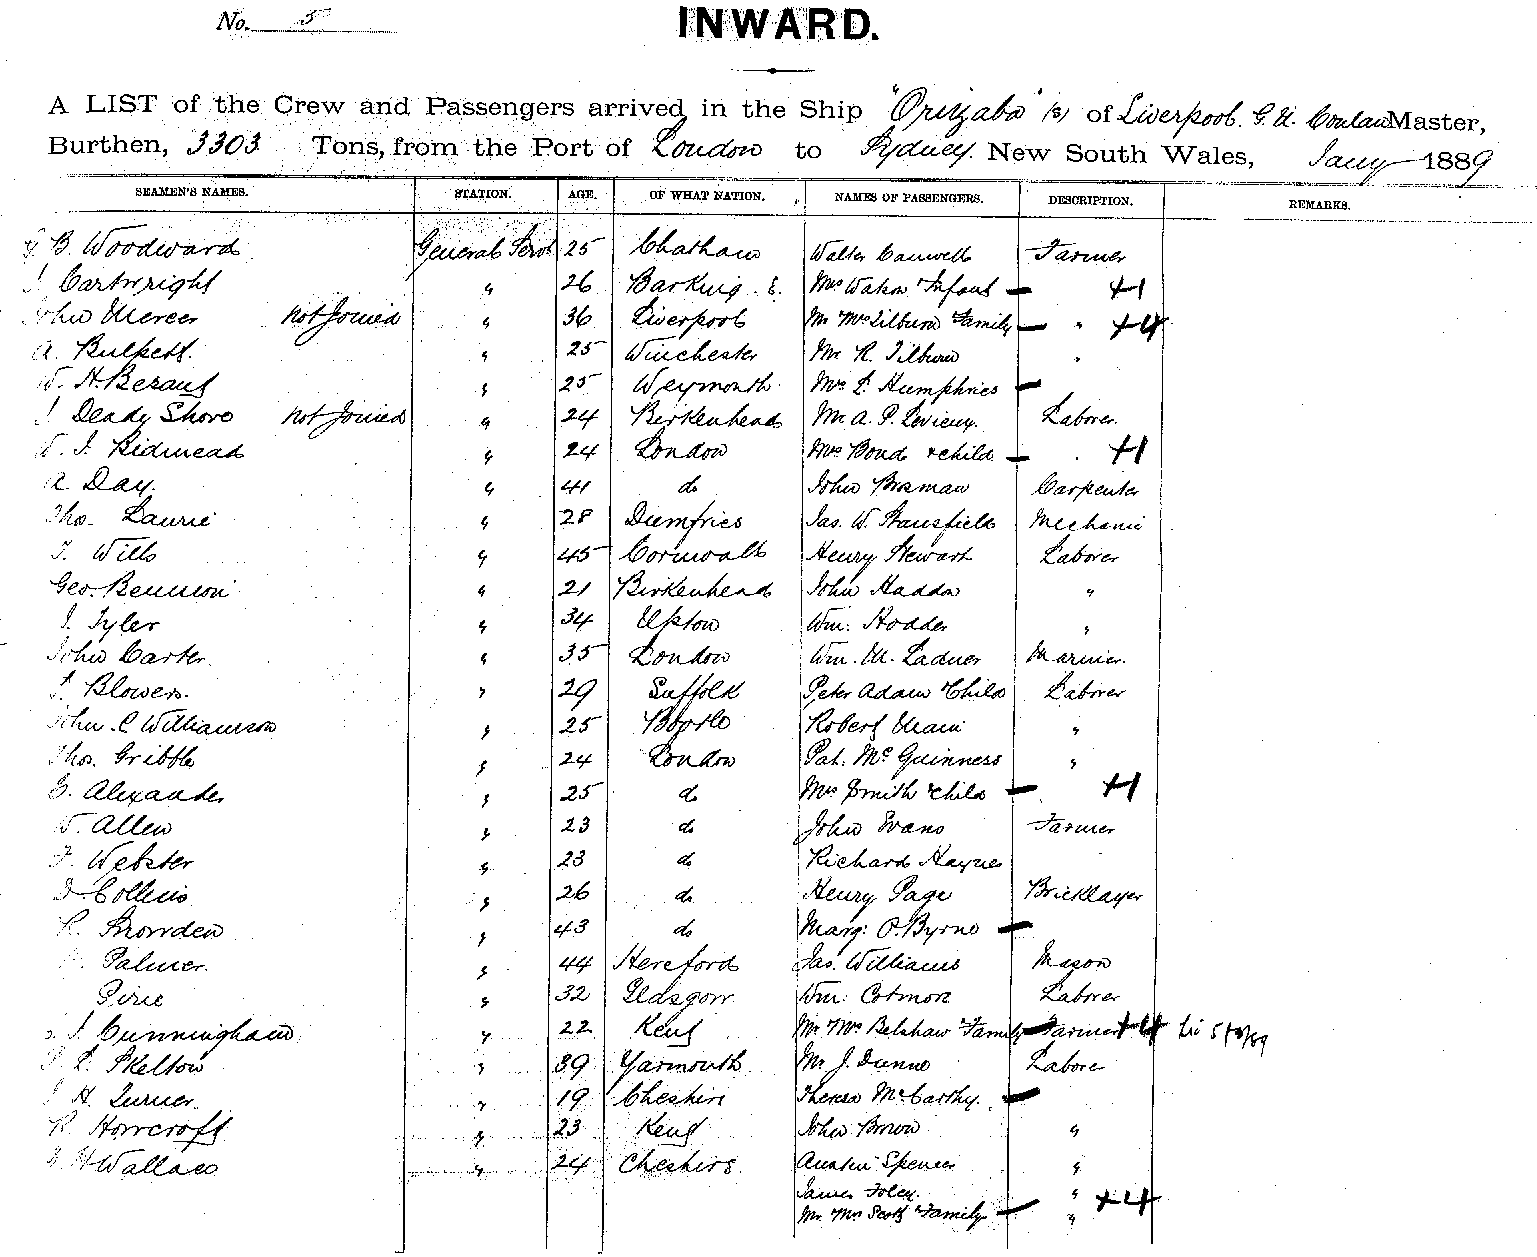 No. 5
INWARD.
A LIST of the Crew and Passengers arrived in the Ship "Orizaba" (s) of Liverpool. G. N. Conlan Master,
Burthen, 3303 Tons, from the Port of London to Sydney. New South Wales, Jany 1889
SEAMEN'S NAMES. STATION. AGE. OF WHAT NATION. NAMES OF PASSENGERS. DESCRIPTION. REMARKS.
B. Woodward General Servt 25 Chatham Walter Farmer
Cartwright " 26 Barking E. Mrs Infant — +1
John Mercer not Joined " 36 Liverpool Mr Mrs Tilburn Family — " +4
A. Bulpett. " 25 Winchester Mr R. Tilburn "
W. H. " 25 Weymouth. Mrs L. Humphries —
J Deady Shore not Joined " 24 Birkenhead Mr A. P. Laborer.
W. J. Bidmead " 24 London Mrs Bond & child — . +1
A Day. " 41 do John Bosman Carpenter
Thos. Laurie " 28 Dumfries Jas. W. Stansfield Mechanic
T. Wills " 45 Cornwall Henry Stewart Laborer
Geo. Bennion " 21 Birkenhead John Haddon "
J. Tyler " 34 Upton Wm. Hodder "
John Carter. " 35 London Wm. M. Ladner Mariner.
Blowers. " 29 Suffolk Peter Adam & Child Laborer
John C Williamson " 25 Bootle Robert Main "
Thos. Gribble " 24 London Pat. Mc Guinness "
G. Alexander " 25 do Mrs Smith & child — +1
W. Allen " 23 do John Evans Farmer
F. Webster " 23 do Richard Haynes
D. Collins " 26 do Henry Page Bricklayer
R. Snowden " 43 do Marg: O'Byrne —
Palmer. " 44 Hereford Jas. Williams Mason
Pirie " 32 Glasgow. Wm. Cotmore Laborer
J. Cunningham " 22 Kent Mr Mrs Belshaw & Family — Farmer +4
Skelton " 39 Yarmouth Mr J. Dunne Laborer
H. Turner. " 19 Cheshire Theresa McCarthy. —
R. Howcroft " 23 Kent John Brown "
H Wallace " 24 Cheshire Austin Spencer "
James Foley. " +4
Mr Mrs Scott & Family — "